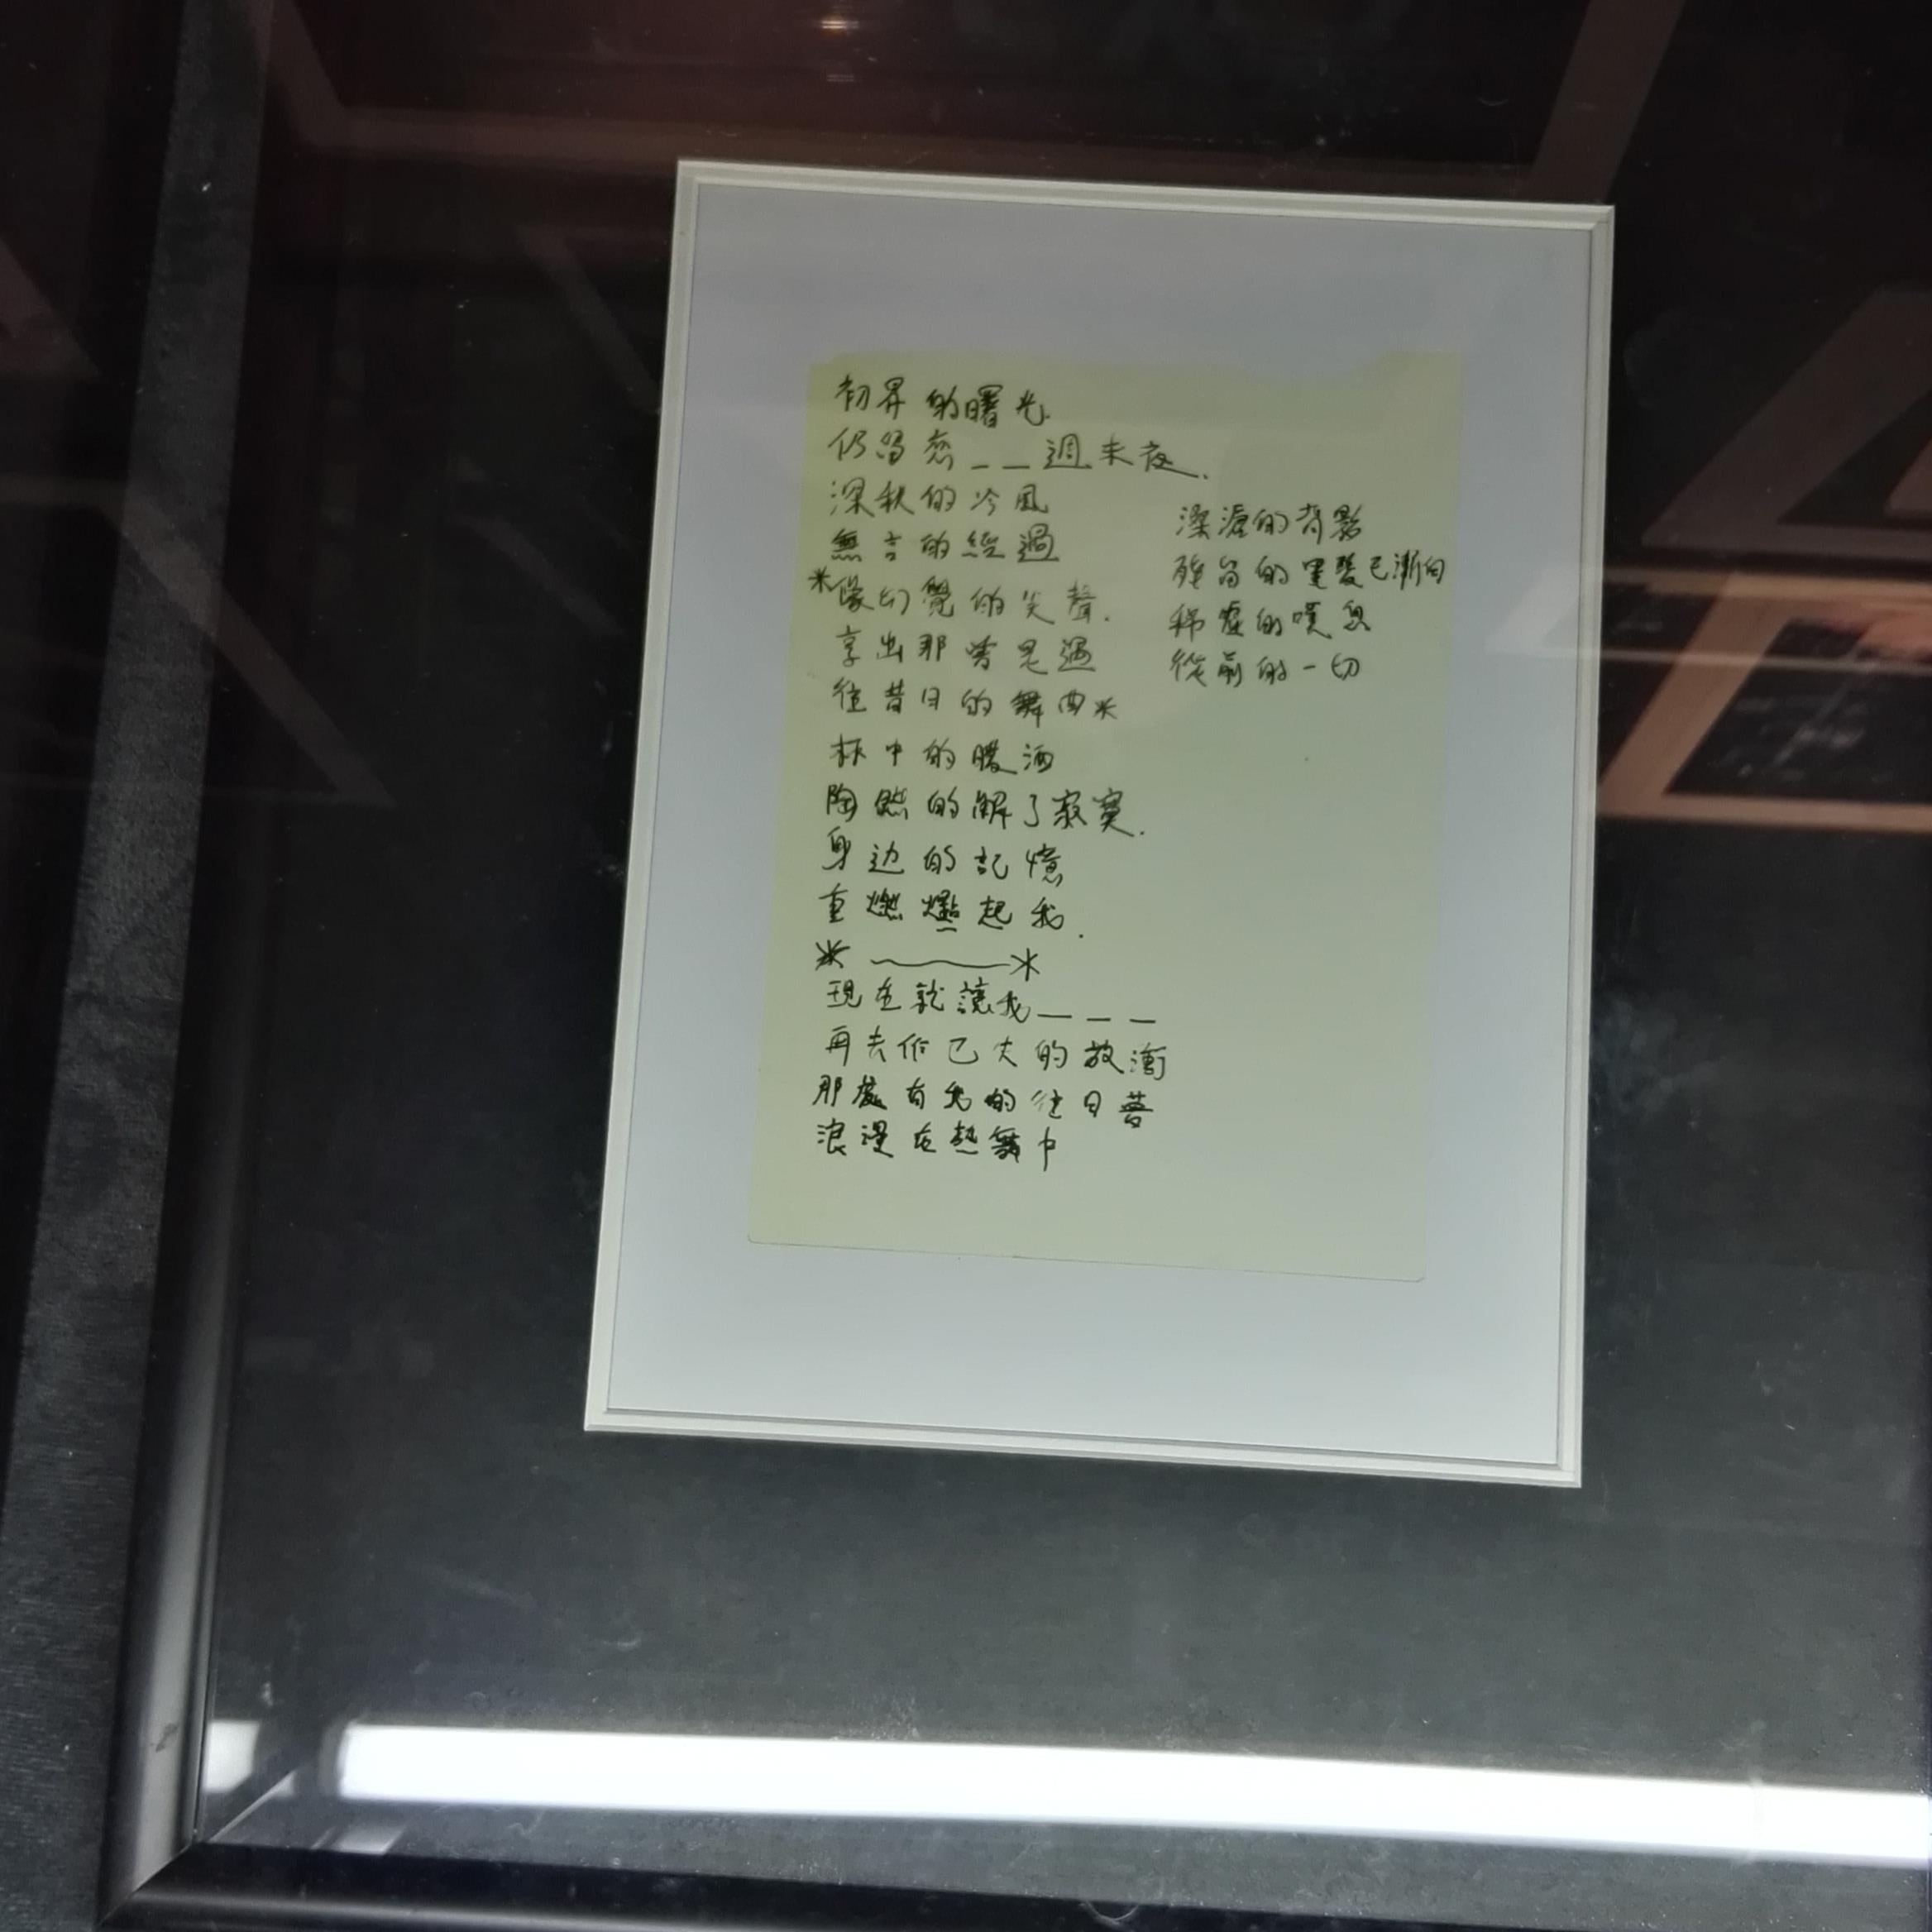 初昇的曙光
仍留戀__週末夜.
深秋的冷風
無言的經過
*像幻覺的笑聲.
享出那曾是過
往昔日的舞曲*
杯中的暖酒
陶然的解了寂寞.
身边的記憶
重燃爩起我.
* ～ *
現在就讓我___
再去俗已大的放
那處有我的往日夢
浪漫在熱舞中
深濃的背影
殘留的裏髮已漸向
稀虛的嘆息
從前的一切